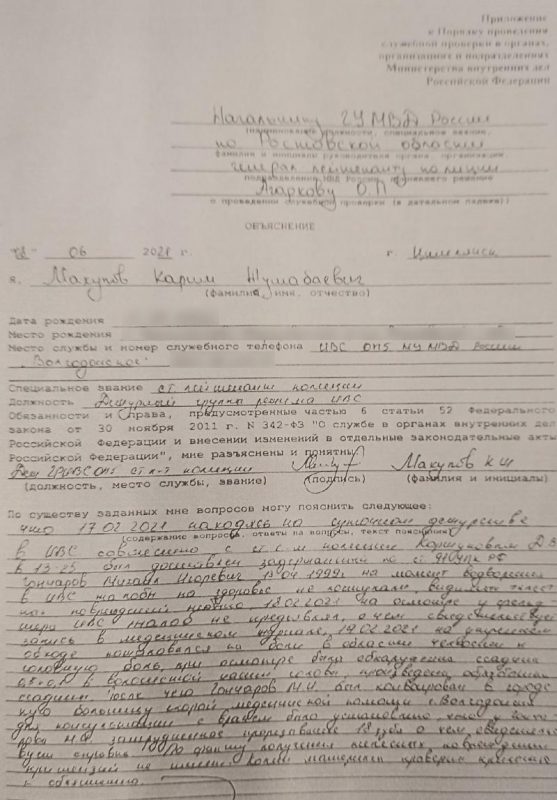 Приложение
к Порядку проведения
служебной проверки в органах,
организациях и подразделениях
Министерства внутренних дел
Российской Федерации
Начальнику ГУ МВД России
(наименование должности, специальное звание,
по Ростовской области
фамилия и инициалы руководителя органа, организации,
генерал лейтенанту полиции
подразделения МВД России, принявшего решение
Агаркову О.П
о проведении служебной проверки (в дательном падеже))
ОБЪЯСНЕНИЕ
06 2021 г. г. Цимлянск
Я, Макупов Карим Жумабаевич
(фамилия, имя, отчество)
Дата рождения
Место рождения
Место службы и номер служебного телефона ИВС ОП5 МУ МВД России
„Волгодонское"
Специальное звание ст лейтенант полиции
Должность Дежурный группа режима ИВС
Обязанности и права, предусмотренные частью 6 статьи 52 Федерального
закона от 30 ноября 2011 г. N 342-ФЗ "О службе в органах внутренних дел
Российской Федерации и внесении изменений в отдельные законодательные акты
Российской Федерации", мне разъяснены и понятны
ст л-т полиции Макупов К Ж
(должность, место службы, звание) (подпись) (фамилия и инициалы)
По существу заданных мне вопросов могу пояснить следующее:
что 17.02.2021 находясь на суточном дежурстве
(содержание вопроса, ответы на вопросы, текст пояснения)
в ИВС совместно с полиции
в 13-25 был доставлен задержанный по ст
Гончаров Михаил Игоревич 1999г на момент водворения
в ИВС жалоб на здоровье не поступали, видимых телес
ных повреждений небыло, 18.02.2021 на осмотре у фельд
шера ИВС жалоб не предъявлял, о чем свидетельствует
запись в медицинском журнале, 19.02.2021 на утреннем
обходе пожаловался на боли в области челюсти и
головную боль, при осмотре была обнаружена ссадина
в волосистой части головы, произведена обработка
ссадины. После чего Гончаров М.И. был конвоирован в городс
кую больницу скорой медицинской помощи г. Волгодонска
для консультации с врачом было установлено, что у Гонча
рова М.И затрудненное прорезывание зуба о чем свидетельс
твует справка. По факту получения телесных повреждений
претензий не имеет. Копии материала проверки
к объяснению.